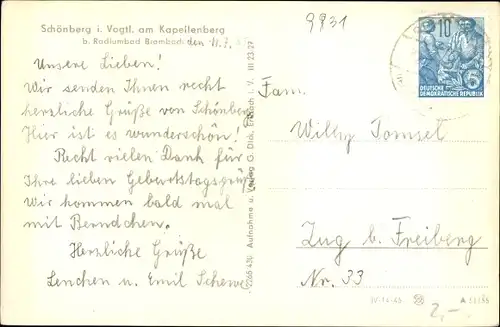 Schönberg i. Vogtl. am Kapellenberg
b. Radiumbad Brambach
den 11.7.
9931
Unsere Lieben!
Wir senden Ihnen recht
herzliche Grüße von Schönberg
Hier ist es wunderschön!
Recht vielen Dank für
Ihre lieben Geburtstagsgrüße
Wir kommen bald mal
mit Berndchen.
Herzliche Grüße
Lenchen u. Emil
Aufnahme u. Verlag G. Dick, Erlbach i. V. III 23-27
10
5
DEUTSCHE
DEMOKRATISCHE REPUBLIK
Fam.
Willy
Zug b. Freiberg
Nr. 33
IV-14-45
2,-